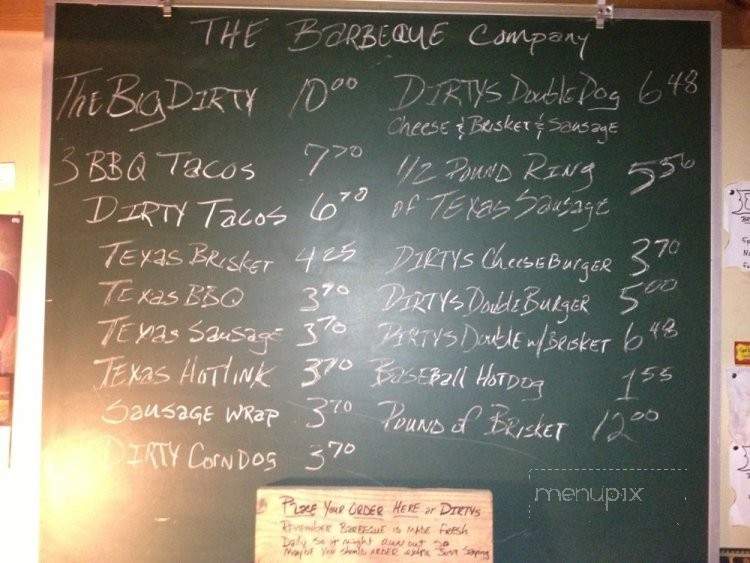 THE BARBEQUE Company
The Big DIRTY 10.00
3 BBQ TACOS 7.70
DIRTY TACOS 6.70
TEXAS BRISKET 4.25
TEXAS BBQ 3.70
TEXAS SAUSAGE 3.70
TEXAS HOTLINK 3.70
SAUSAGE WRAP 3.70
DIRTY CORNDOG 3.70
DIRTYS Double Dog 6.48
Cheese & BRISKET & SAUSAGE
1/2 POUND RING 5.56
of TEXAS SAUSAGE
DIRTYS CheeseBurger 3.70
DIRTYS Double Burger 5.00
DIRTYS Double w/ BRISKET 6.48
BASEBALL HOTDOG 1.55
POUND of BRISKET 12.00
PLACE YOUR ORDER HERE at DIRTYS
REMEMBER BARBEQUE IS MADE FRESH
Daily So it might run out so
Maybe You should ORDER extra
menupix